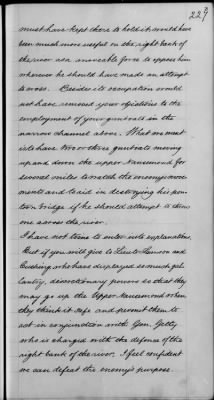 227
must have kept there to hold it would have
been much more useful on the right bank of
the river as a movable force to oppose him
wherever he should have made an attempt
to cross. Besides its occupation would
not have removed your objections to the
employment of your gunboats in the
narrow channel above. What we must
is to have two or three gunboats moving
up and down the upper Nansemond for
several miles to watch the enemy's move
ments and to aid in destroying his pon
toon bridge if he should attempt to throw
one across the river.
I have not time to enter into explanations.
But if you will give to Lieuts Lamson and
Cushing who have displayed so much gal
lantry, discretionary powers so that they
may go up the Upper Nansemond when
they think it safe and permit them to
act in conjunction with Gen. Getty
who is charged with the defence of the
right bank of the river. I feel confident
we can defeat the enemy's purpose.